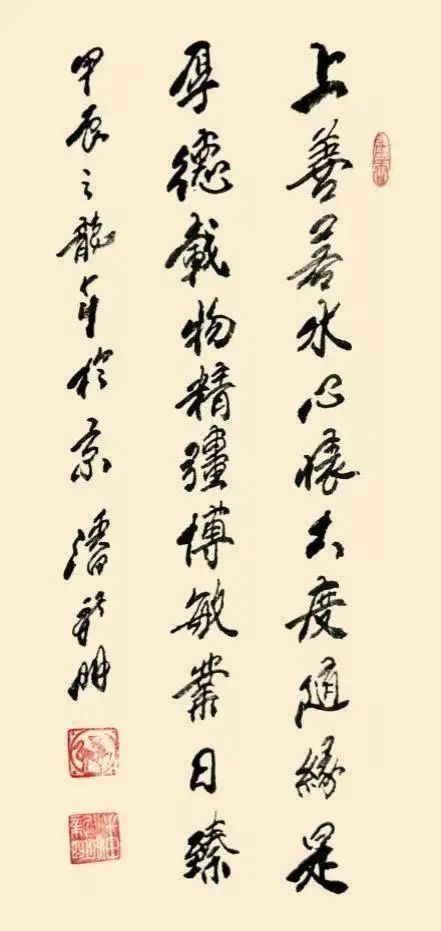 上善若水心懷大度隨緣是
厚德載物精彊博敏業日臻
甲辰之龍年於京 潘新明